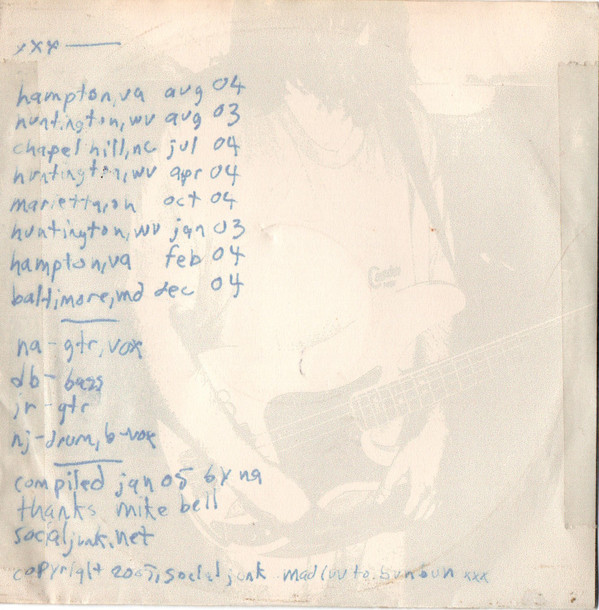 xxx
hampton, va aug 04
huntington, wv aug 03
chapel hill, nc jul 04
huntington, wv apr 04
marietta, oh oct 04
huntington, wv jan 03
hampton, va feb 04
baltimore, md dec 04
na - gtr, vox
db - bass
jr - gtr
nj - drum, b-vox
compiled jan 05 by na
thanks mike bell
socialjunk.net
copyright 2005, social junk mad luv to bunbun xxx